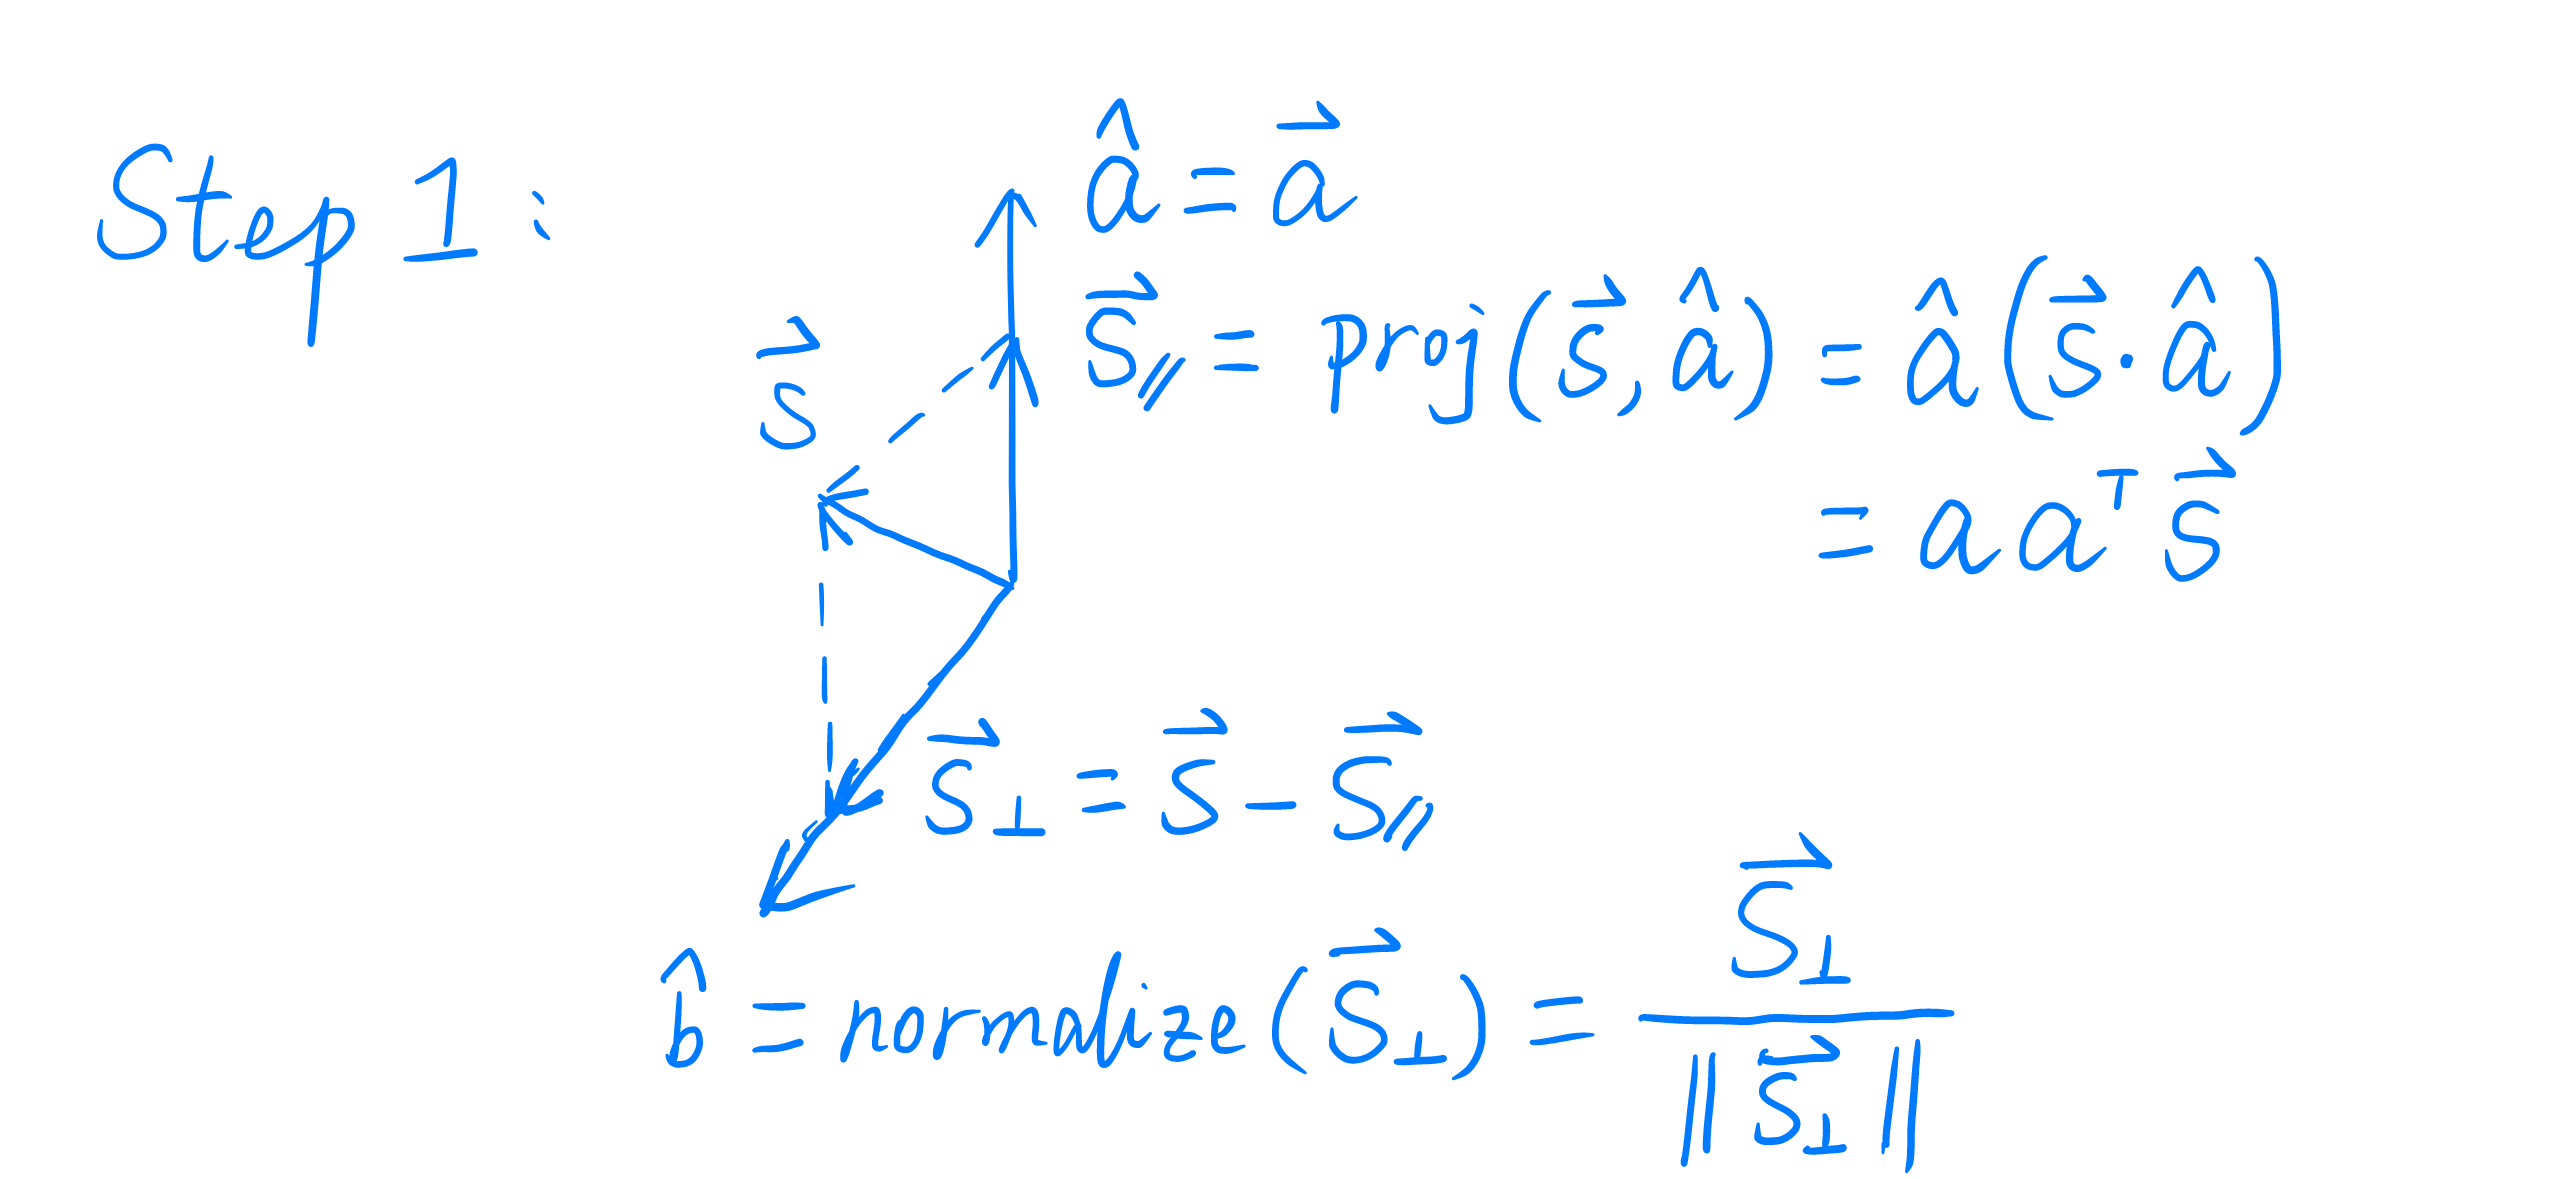 Step 1:
â = a⃗
s⃗
S⃗∥ = proj(s⃗, â) = â(s⃗·â)
= a aᵀ s⃗
s⃗⊥ = s⃗ − S⃗∥
b̂ = normalize(S⃗⊥) = S⃗⊥ / ‖S⃗⊥‖